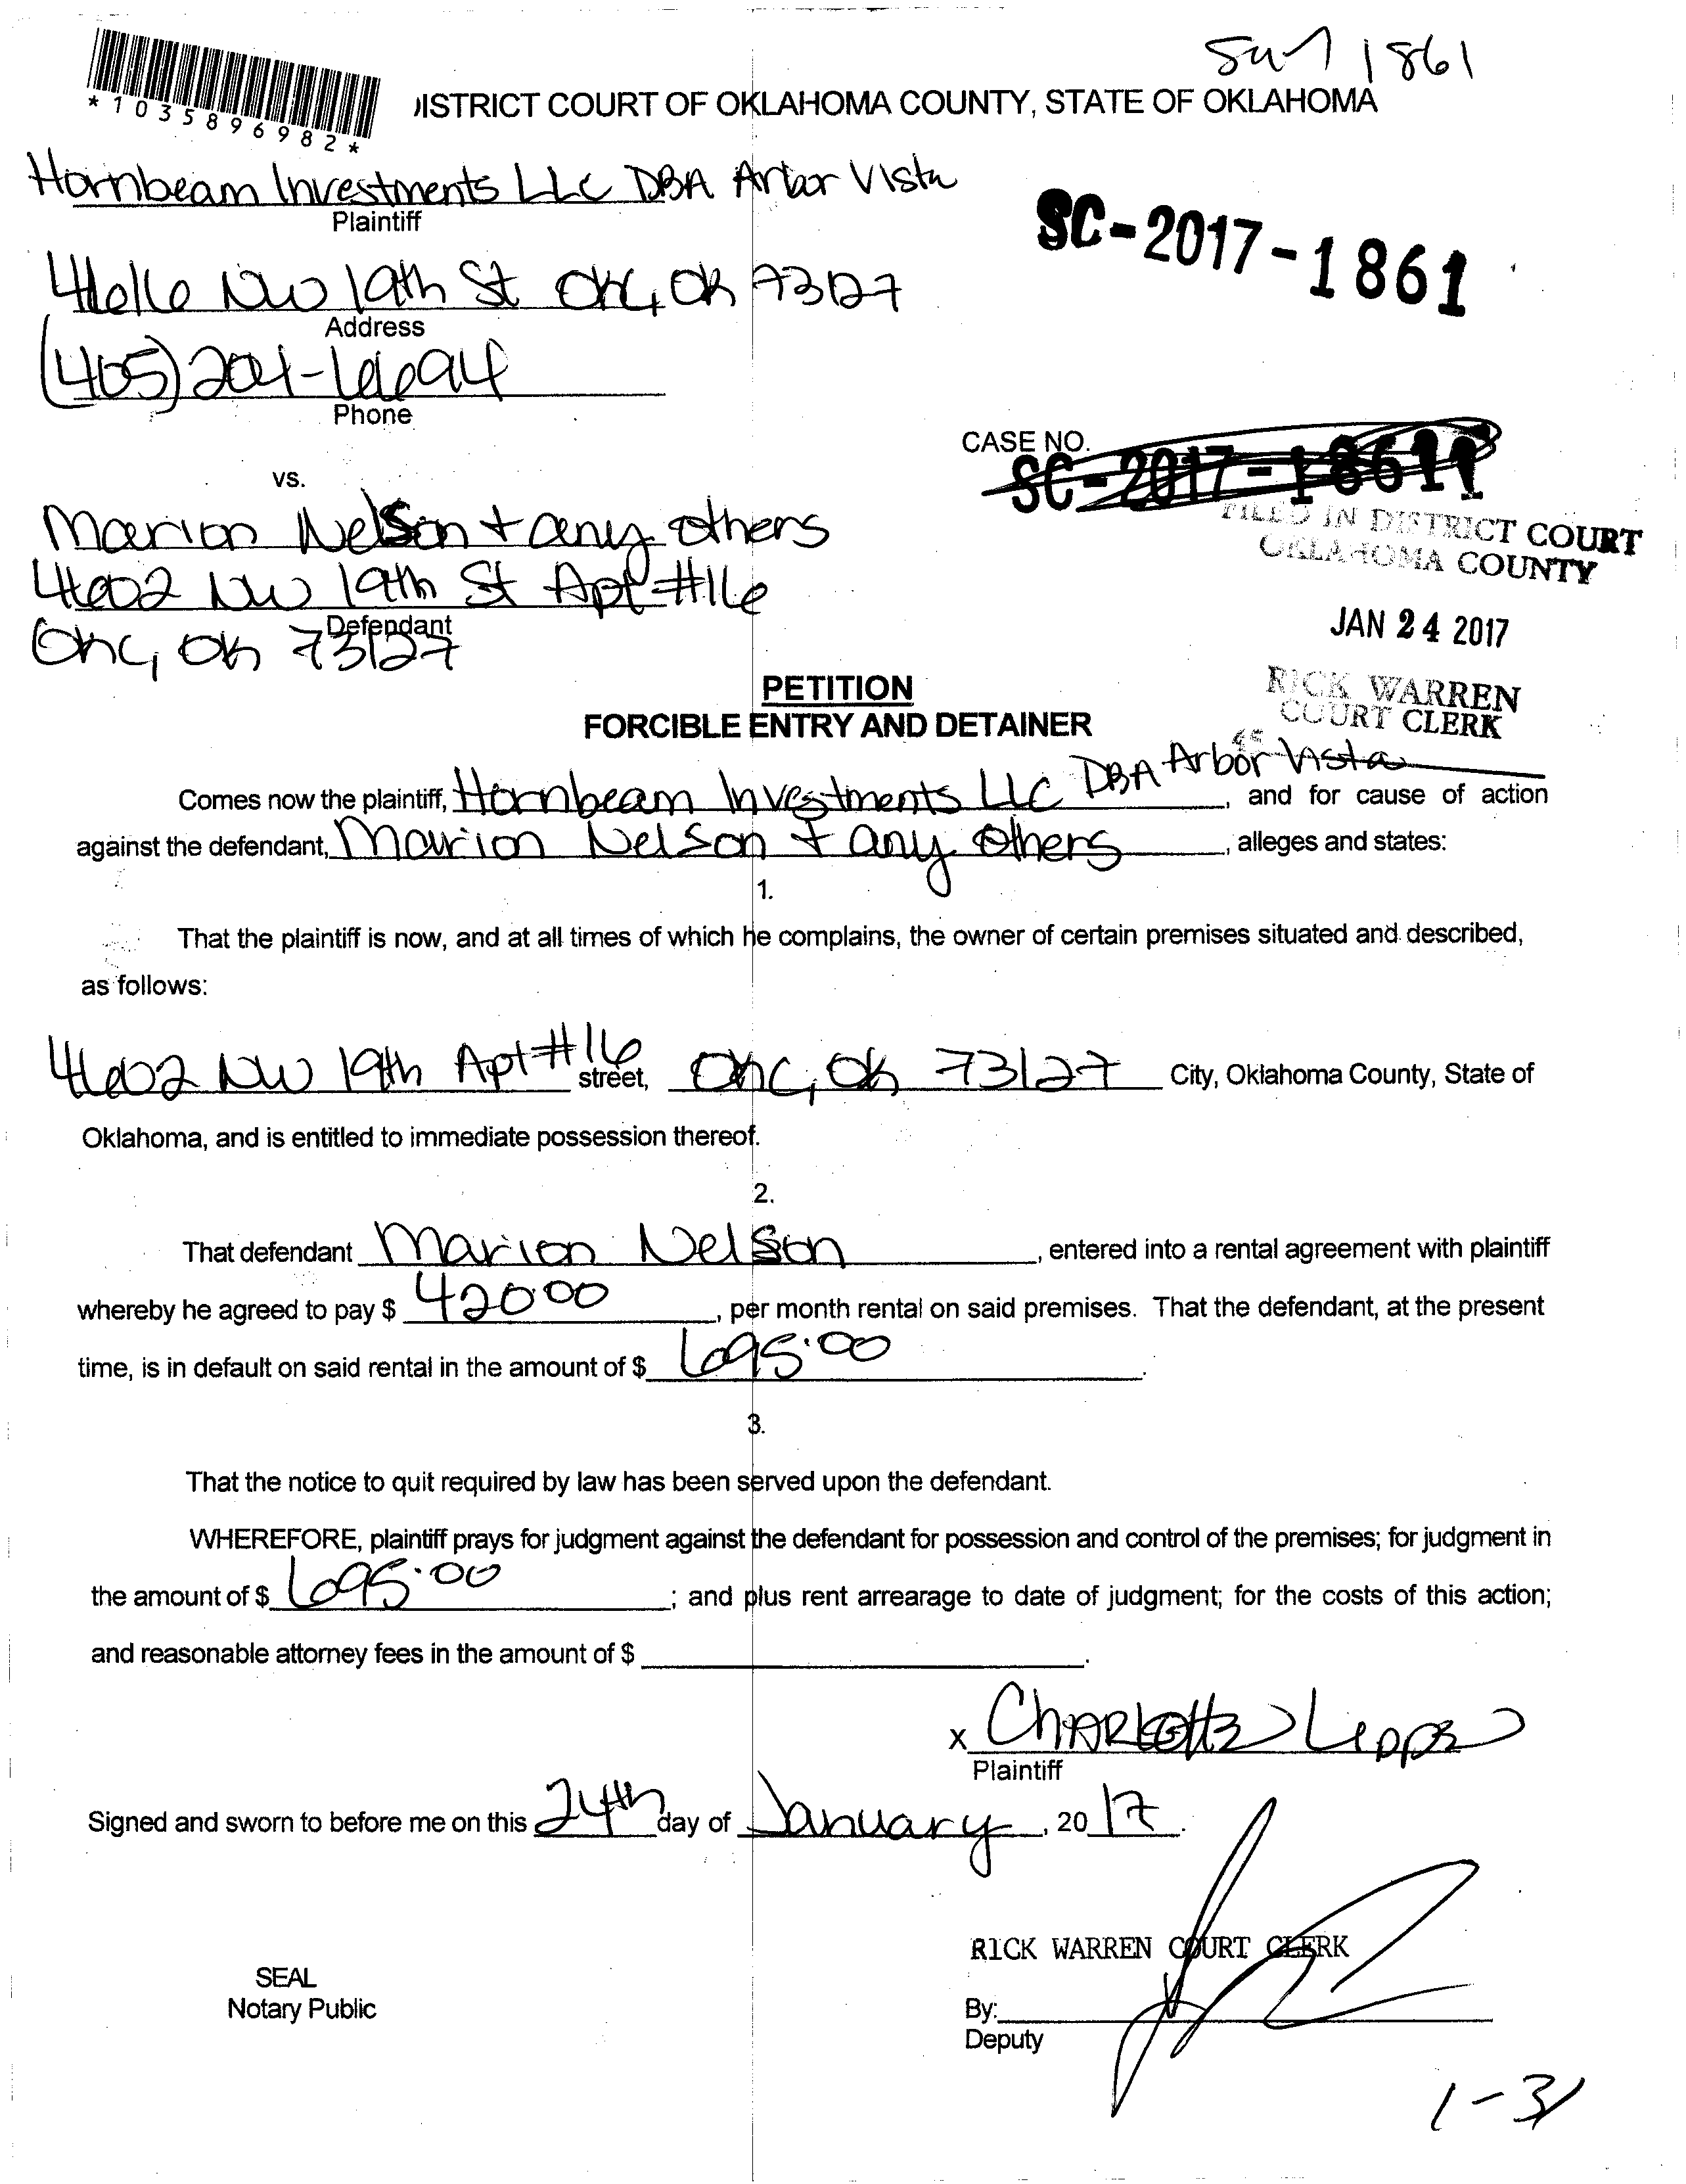 Sm7 1861
*1035896982*
DISTRICT COURT OF OKLAHOMA COUNTY, STATE OF OKLAHOMA
Hornbeam Investments LLC DBA Arbor Vista
Plaintiff
SC-2017-1861
4616 NW 19th St OKC, OK 73127
Address
(405) 204-6694
Phone
CASE NO.
SC-2017-1861
vs.
FILED IN DISTRICT COURT
OKLAHOMA COUNTY
Marion Nelson + any others
4602 NW 19th St Apt #16
Defendant
OKC, OK 73127
JAN 24 2017
RICK WARREN
COURT CLERK
45
PETITION
FORCIBLE ENTRY AND DETAINER
Comes now the plaintiff, Hornbeam Investments LLC DBA Arbor Vista, and for cause of action
against the defendant, Marion Nelson + any others, alleges and states:
1.
That the plaintiff is now, and at all times of which he complains, the owner of certain premises situated and described,
as follows:
4602 NW 19th Apt #16 street, OKC, OK 73127 City, Oklahoma County, State of
Oklahoma, and is entitled to immediate possession thereof.
2.
That defendant Marion Nelson, entered into a rental agreement with plaintiff
whereby he agreed to pay $ 420 00, per month rental on said premises. That the defendant, at the present
time, is in default on said rental in the amount of $ 695.00.
3.
That the notice to quit required by law has been served upon the defendant.
WHEREFORE, plaintiff prays for judgment against the defendant for possession and control of the premises; for judgment in
the amount of $ 695.00; and plus rent arrearage to date of judgment; for the costs of this action;
and reasonable attorney fees in the amount of $.
x Charlotte Lepps
Plaintiff
Signed and sworn to before me on this 24th day of January, 20 17.
RICK WARREN COURT CLERK
SEAL
Notary Public
By:
Deputy
1-31